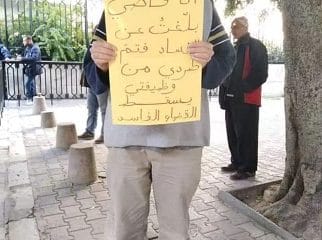 أنا
بلّغتُ عن
فساد فتمّ
طردي من
وظيفتي
يسقط
القضاء الفاسد